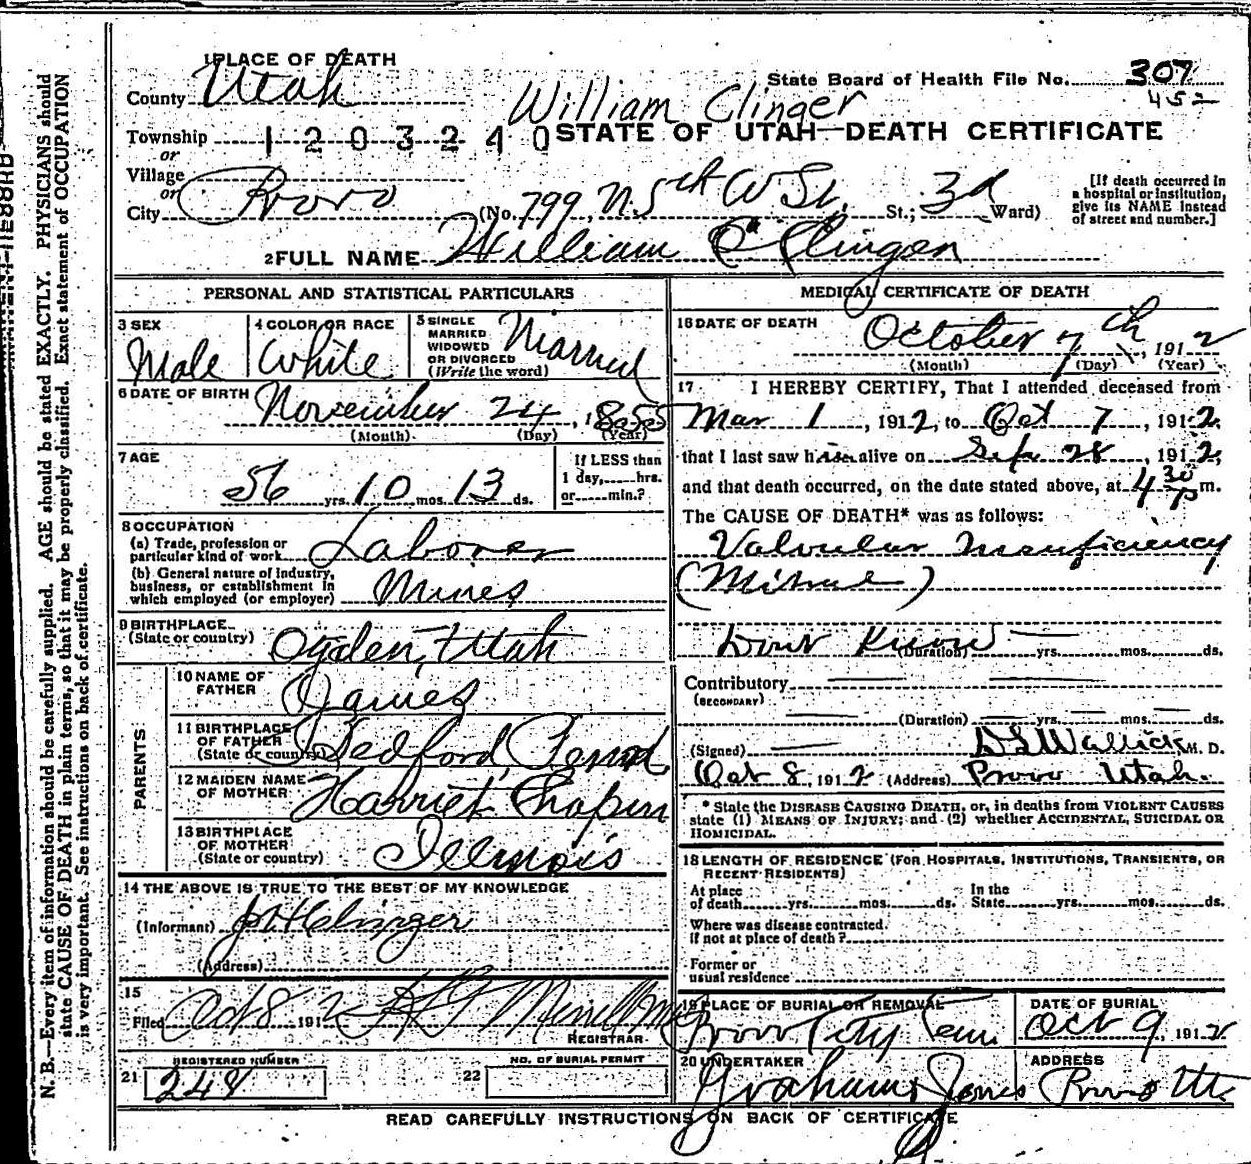 1 PLACE OF DEATH
County Utah
State Board of Health File No. 307
452
William Clinger
Township 1203240
STATE OF UTAH—DEATH CERTIFICATE
or
Village
or
City Provo (No. 799, N 5th W St. St.; 3d Ward)
[If death occurred in a hospital or institution, give its NAME instead of street and number.]
2 FULL NAME William C Clinger
PERSONAL AND STATISTICAL PARTICULARS
3 SEX Male
4 COLOR OR RACE White
5 SINGLE MARRIED WIDOWED OR DIVORCED (Write the word) Married
6 DATE OF BIRTH November 24, 1855
(Month) (Day) (Year)
7 AGE 56 yrs. 10 mos. 13 ds.
If LESS than 1 day, hrs. or min.?
8 OCCUPATION
(a) Trade, profession or particular kind of work Laborer
(b) General nature of industry, business, or establishment in which employed (or employer) Mines
9 BIRTHPLACE (State or country) Ogden, Utah
PARENTS
10 NAME OF FATHER James
11 BIRTHPLACE OF FATHER (State or country) Bedford,
12 MAIDEN NAME OF MOTHER Harriet Chapin
13 BIRTHPLACE OF MOTHER (State or country) Illinois
14 THE ABOVE IS TRUE TO THE BEST OF MY KNOWLEDGE
(Informant) J H Clinger
(Address)
15 Filed Oct 8 1912
REGISTRAR
REGISTERED NUMBER
21 248
NO. OF BURIAL PERMIT
22
MEDICAL CERTIFICATE OF DEATH
16 DATE OF DEATH October 7th, 1912
(Month) (Day) (Year)
17 I HEREBY CERTIFY, That I attended deceased from
Mar 1, 1912, to Oct 7, 1912,
that I last saw him alive on Sept 28, 1912,
and that death occurred, on the date stated above, at 4 30 P m.
The CAUSE OF DEATH* was as follows:
Valvular Insuficiency
(Mitral)
Dont Know (Duration) yrs. mos. ds.
Contributory
(SECONDARY)
(Duration) yrs. mos. ds.
(Signed) D S Wallick M. D.
Oct 8, 1912 (Address) Provo Utah.
* State the DISEASE CAUSING DEATH, or, in deaths from VIOLENT CAUSES
state (1) MEANS OF INJURY; and (2) whether ACCIDENTAL, SUICIDAL OR
HOMICIDAL.
18 LENGTH OF RESIDENCE (FOR HOSPITALS, INSTITUTIONS, TRANSIENTS, OR
RECENT RESIDENTS)
At place of death yrs. mos. ds. In the State yrs. mos. ds.
Where was disease contracted.
If not at place of death?
Former or usual residence
19 PLACE OF BURIAL OR REMOVAL Provo City Cem
DATE OF BURIAL Oct 9, 1912
20 UNDERTAKER Graham Jones
ADDRESS Provo Ut.
READ CAREFULLY INSTRUCTIONS ON BACK OF CERTIFICATE
N. B.—Every item of information should be carefully supplied. AGE should be stated EXACTLY. PHYSICIANS should
state CAUSE OF DEATH in plain terms, so that it may be properly classified. Exact statement of OCCUPATION
is very important. See instructions on back of certificate.